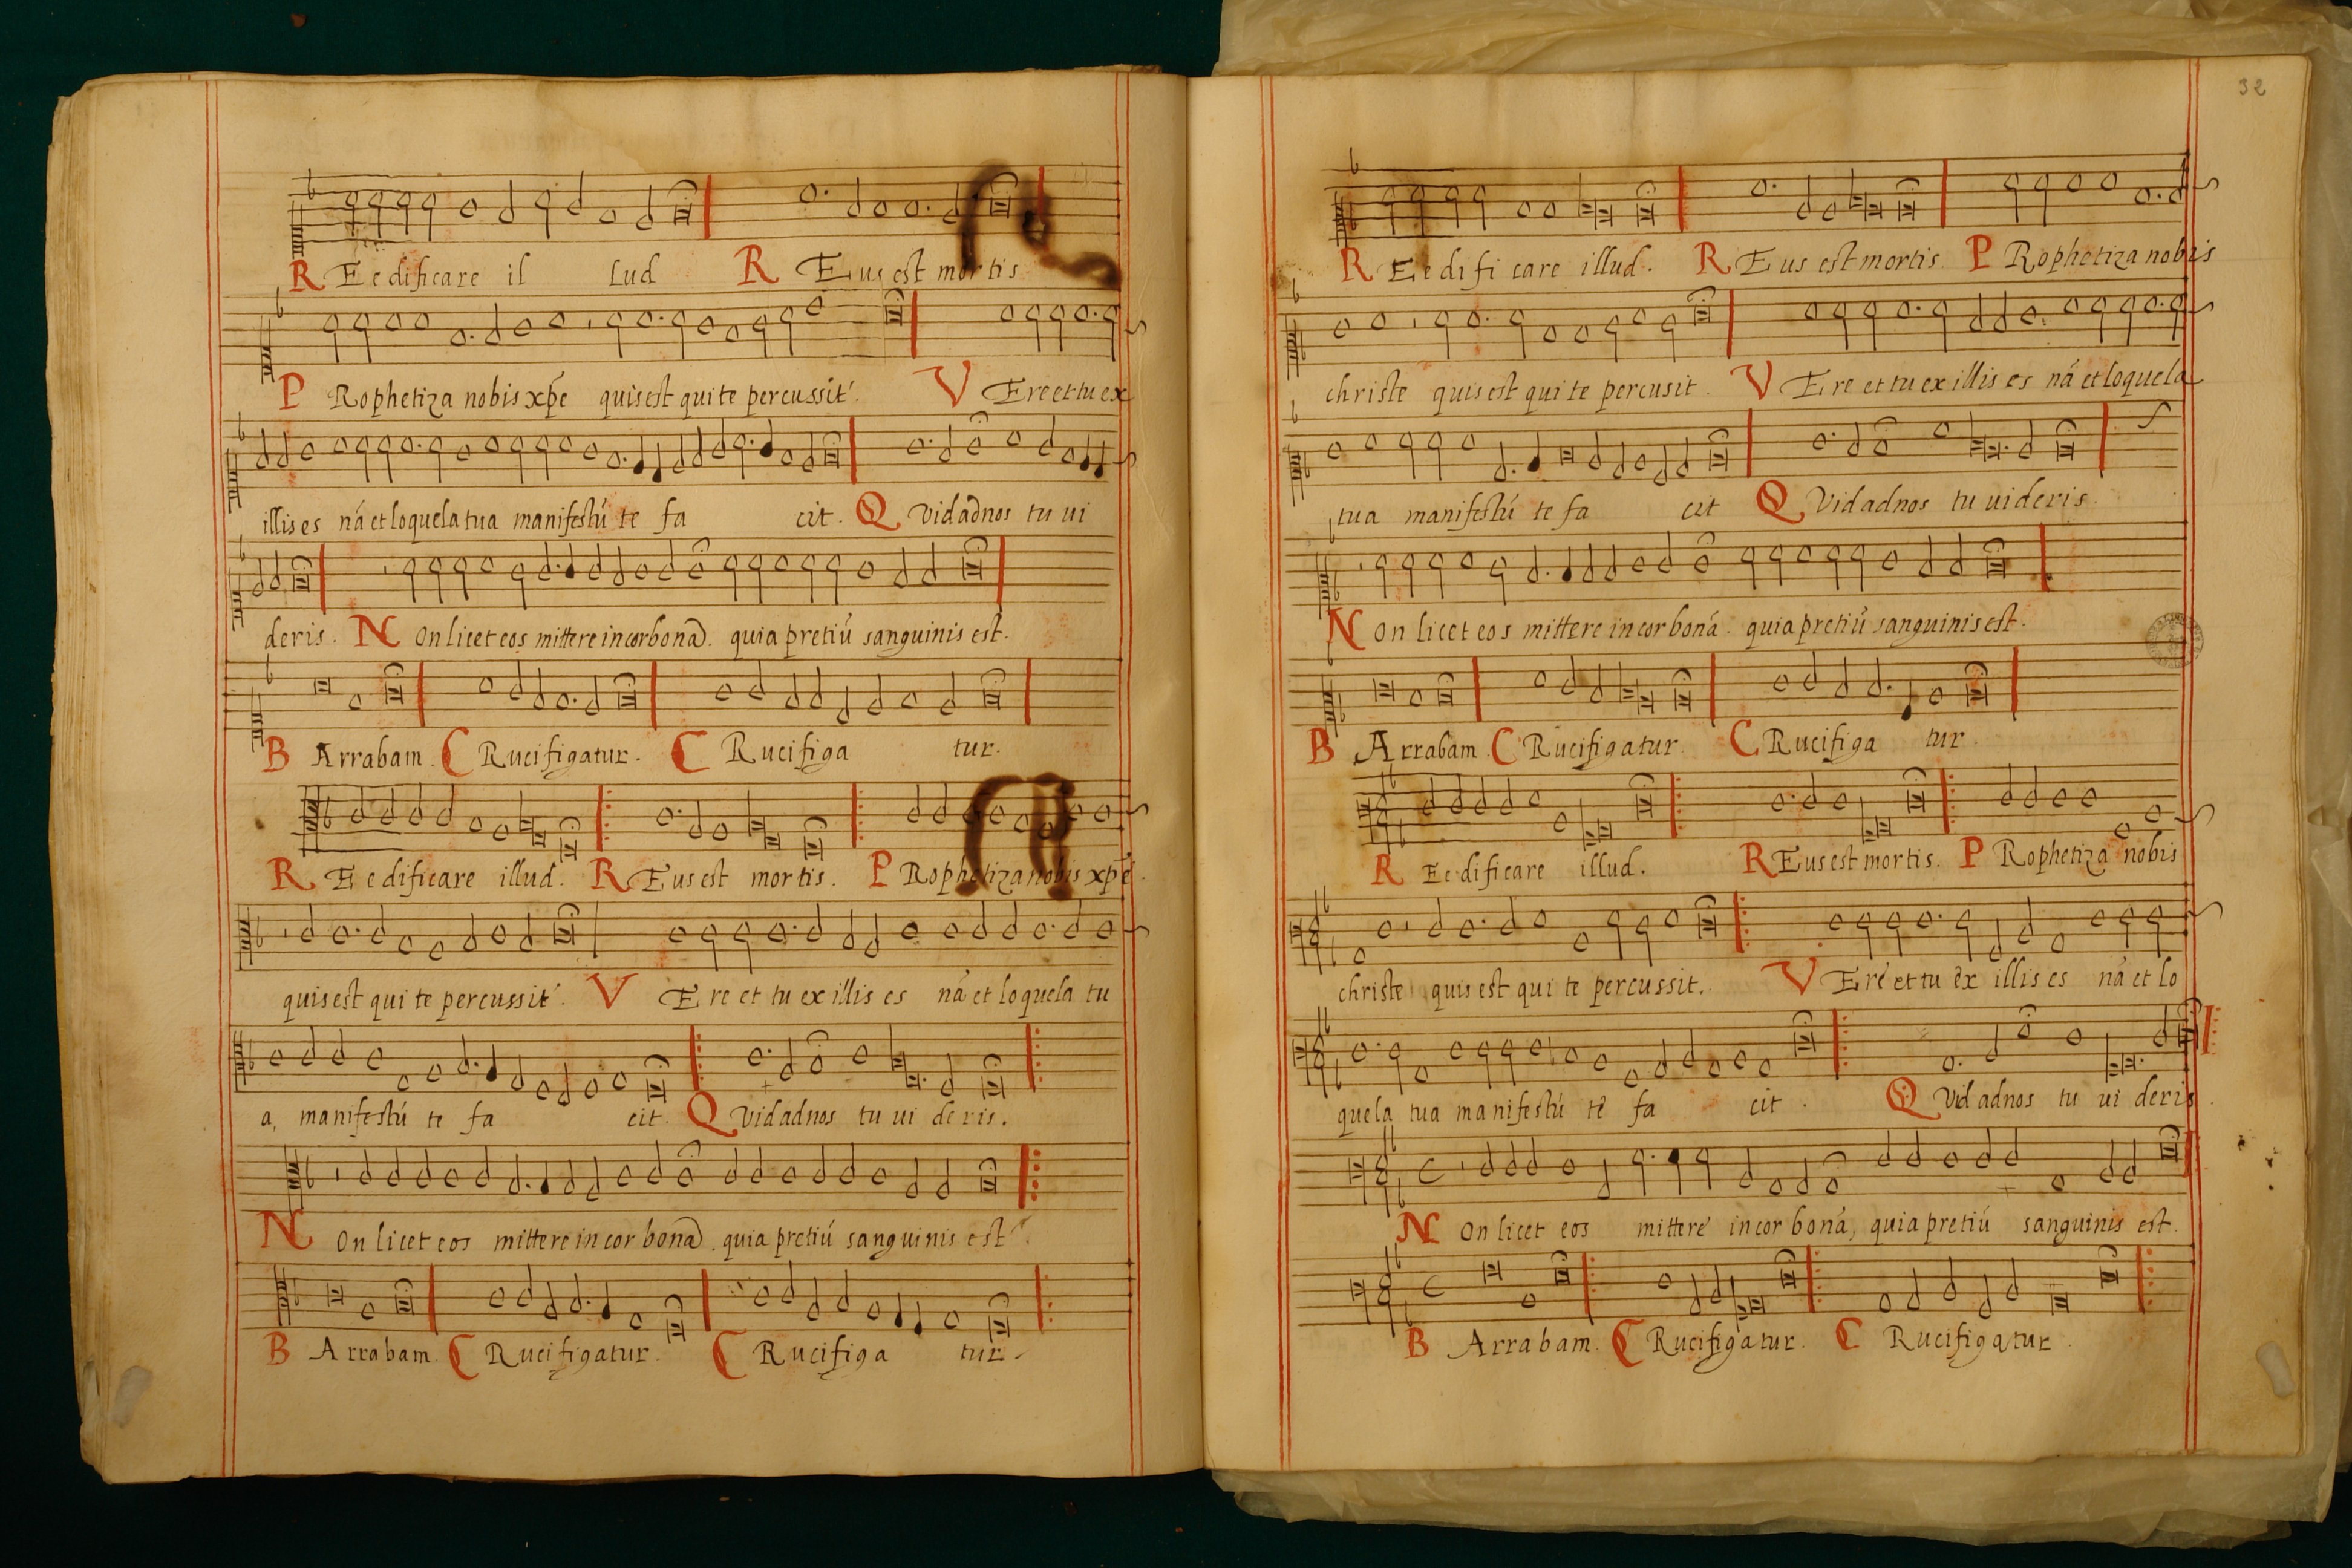 REedificare il lud REus est mortis
PRophetiza nobis xp̄e quis est qui te percussit. VEre et tu ex
illis es nā et loquela tua manifestū te fa cit. QVid ad nos tu ui
deris. NOn licet eos mittere in corbonā. quia pretiū sanguinis est.
BArrabam. CRucifigatur. CRucifiga tur.
REedificare illud. REus est mortis. PRophetiza nobis xp̄e.
quis est qui te percussit. VEre et tu ex illis es nā et loquela tu
a, manifestū te fa cit. QVid ad nos tu ui deris.
NOn licet eos mittere in cor bonā. quia pretiū sanguinis est.
BArrabam. CRucifigatur. CRucifiga tur.
32
REedifi care illud. REus est mortis PRophetiza nobis
christe quis est qui te percusit. VEre et tu ex illis es nā et loquela
tua manifestū te fa cit QVid ad nos tu uideris.
NOn licet eos mittere in cor bonā. quia pretiū sanguinis est.
BArrabam. CRucifigatur. CRucifiga tur.
REedificare illud. REus est mortis. PRophetiza nobis
christe quis est qui te percussit. VEre et tu ex illis es nā et lo
quela tua manifestū te fa cit. QVid ad nos tu ui deris.
NOn licet eos mittere in cor bonā, quia pretiū sanguinis est.
BArrabam. CRucifigatur. CRucifigatur.